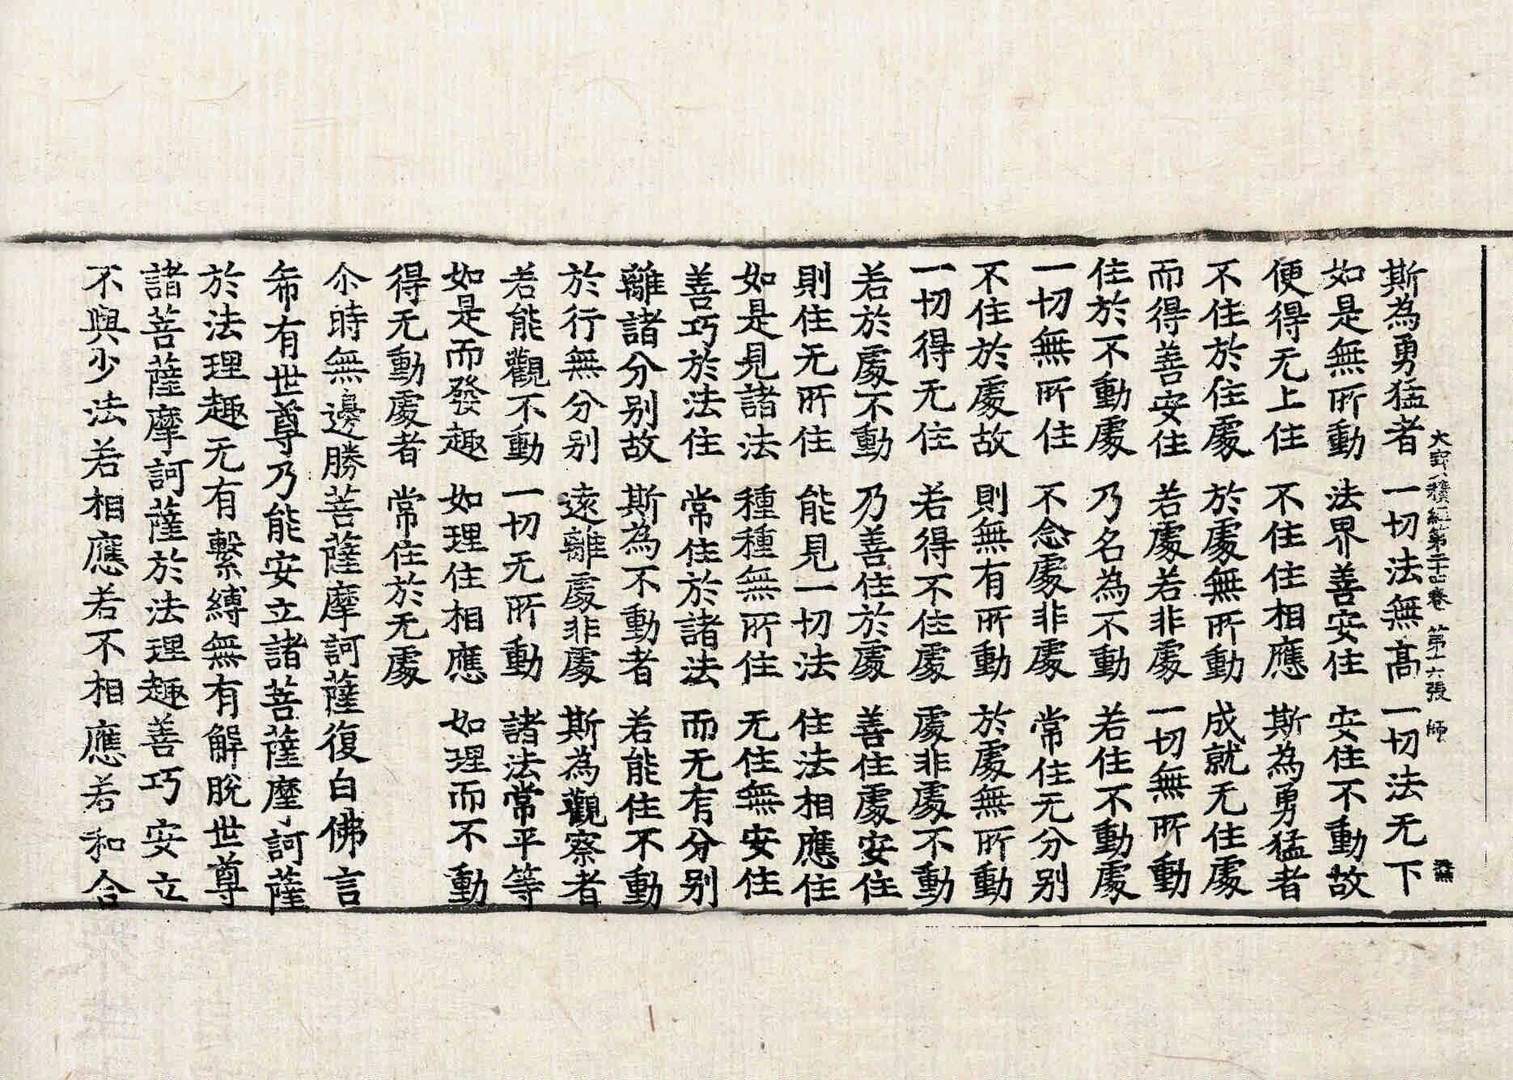 大寶積經第二十四卷 第十六張 師
斯為勇猛者 一切法無高 一切法无下
如是無所動 法界善安住 安住不動故
便得无上住 不住住相應 斯為勇猛者
不住於住處 於處無所動 成就无住處
而得善安住 若處若非處 一切無所動
住於不動處 乃名為不動 若住不動處
一切無所住 不念處非處 常住无分别
不住於處故 則無有所動 於處無所動
一切得无住 若得不住處 處非處不動
若於處不動 乃善住於處 善住處安住
則住无所住 能見一切法 住法相應住
如是見諸法 種種無所住 无住無安住
善巧於法住 常住於諸法 而无有分别
離諸分别故 斯為不動者 若能住不動
於行無分别 遠離處非處 斯為觀察者
若能觀不動 一切无所動 諸法常平等
如是而發趣 如理住相應 如理而不動
得无動處者 常住於无處
尒時無邊勝菩薩摩訶薩復白佛言
希有世尊乃能安立諸菩薩摩訶薩
於法理趣无有繫縛無有解脫世尊
諸菩薩摩訶薩於法理趣善巧安立
不與少法若相應若不相應若和合